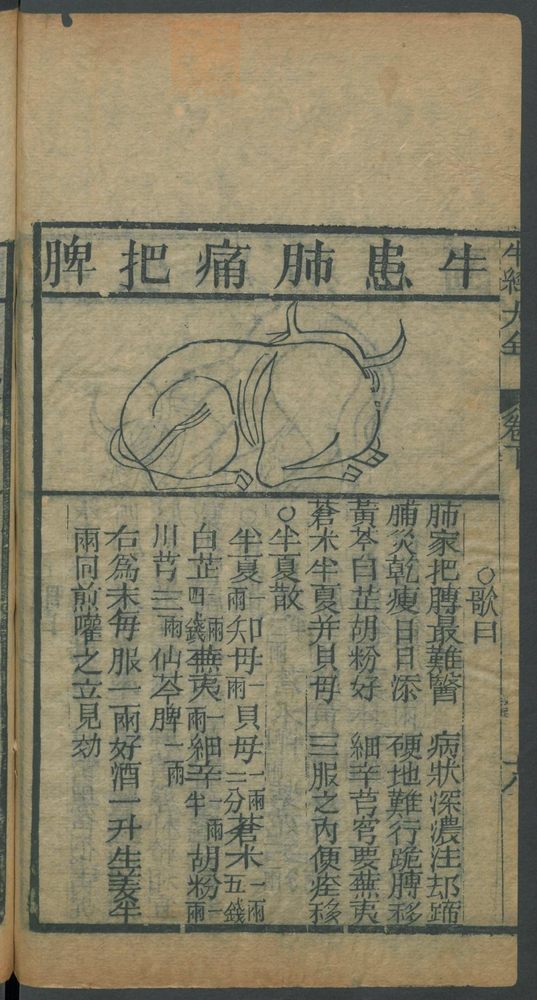 牛經大全 卷下
牛患肺痛把脾
○歌曰
肺家把膊最難醫 病狀深濃注却蹄
脯炙乾瘦日日添 硬地難行跪膊移
黃芩白芷胡粉好 細辛芎窮要蕪夷
蒼朮半夏并貝母 三服之內便痊移
○半夏散
半夏一兩 知母一兩 貝母一兩二分 蒼朮一兩五錢
白芷一兩四錢 蕪夷一兩 細辛一兩半 胡粉一兩
川芎三兩 仙苓脾一兩
右爲末每服一兩好酒一升生姜半
兩同煎嚾之立見効